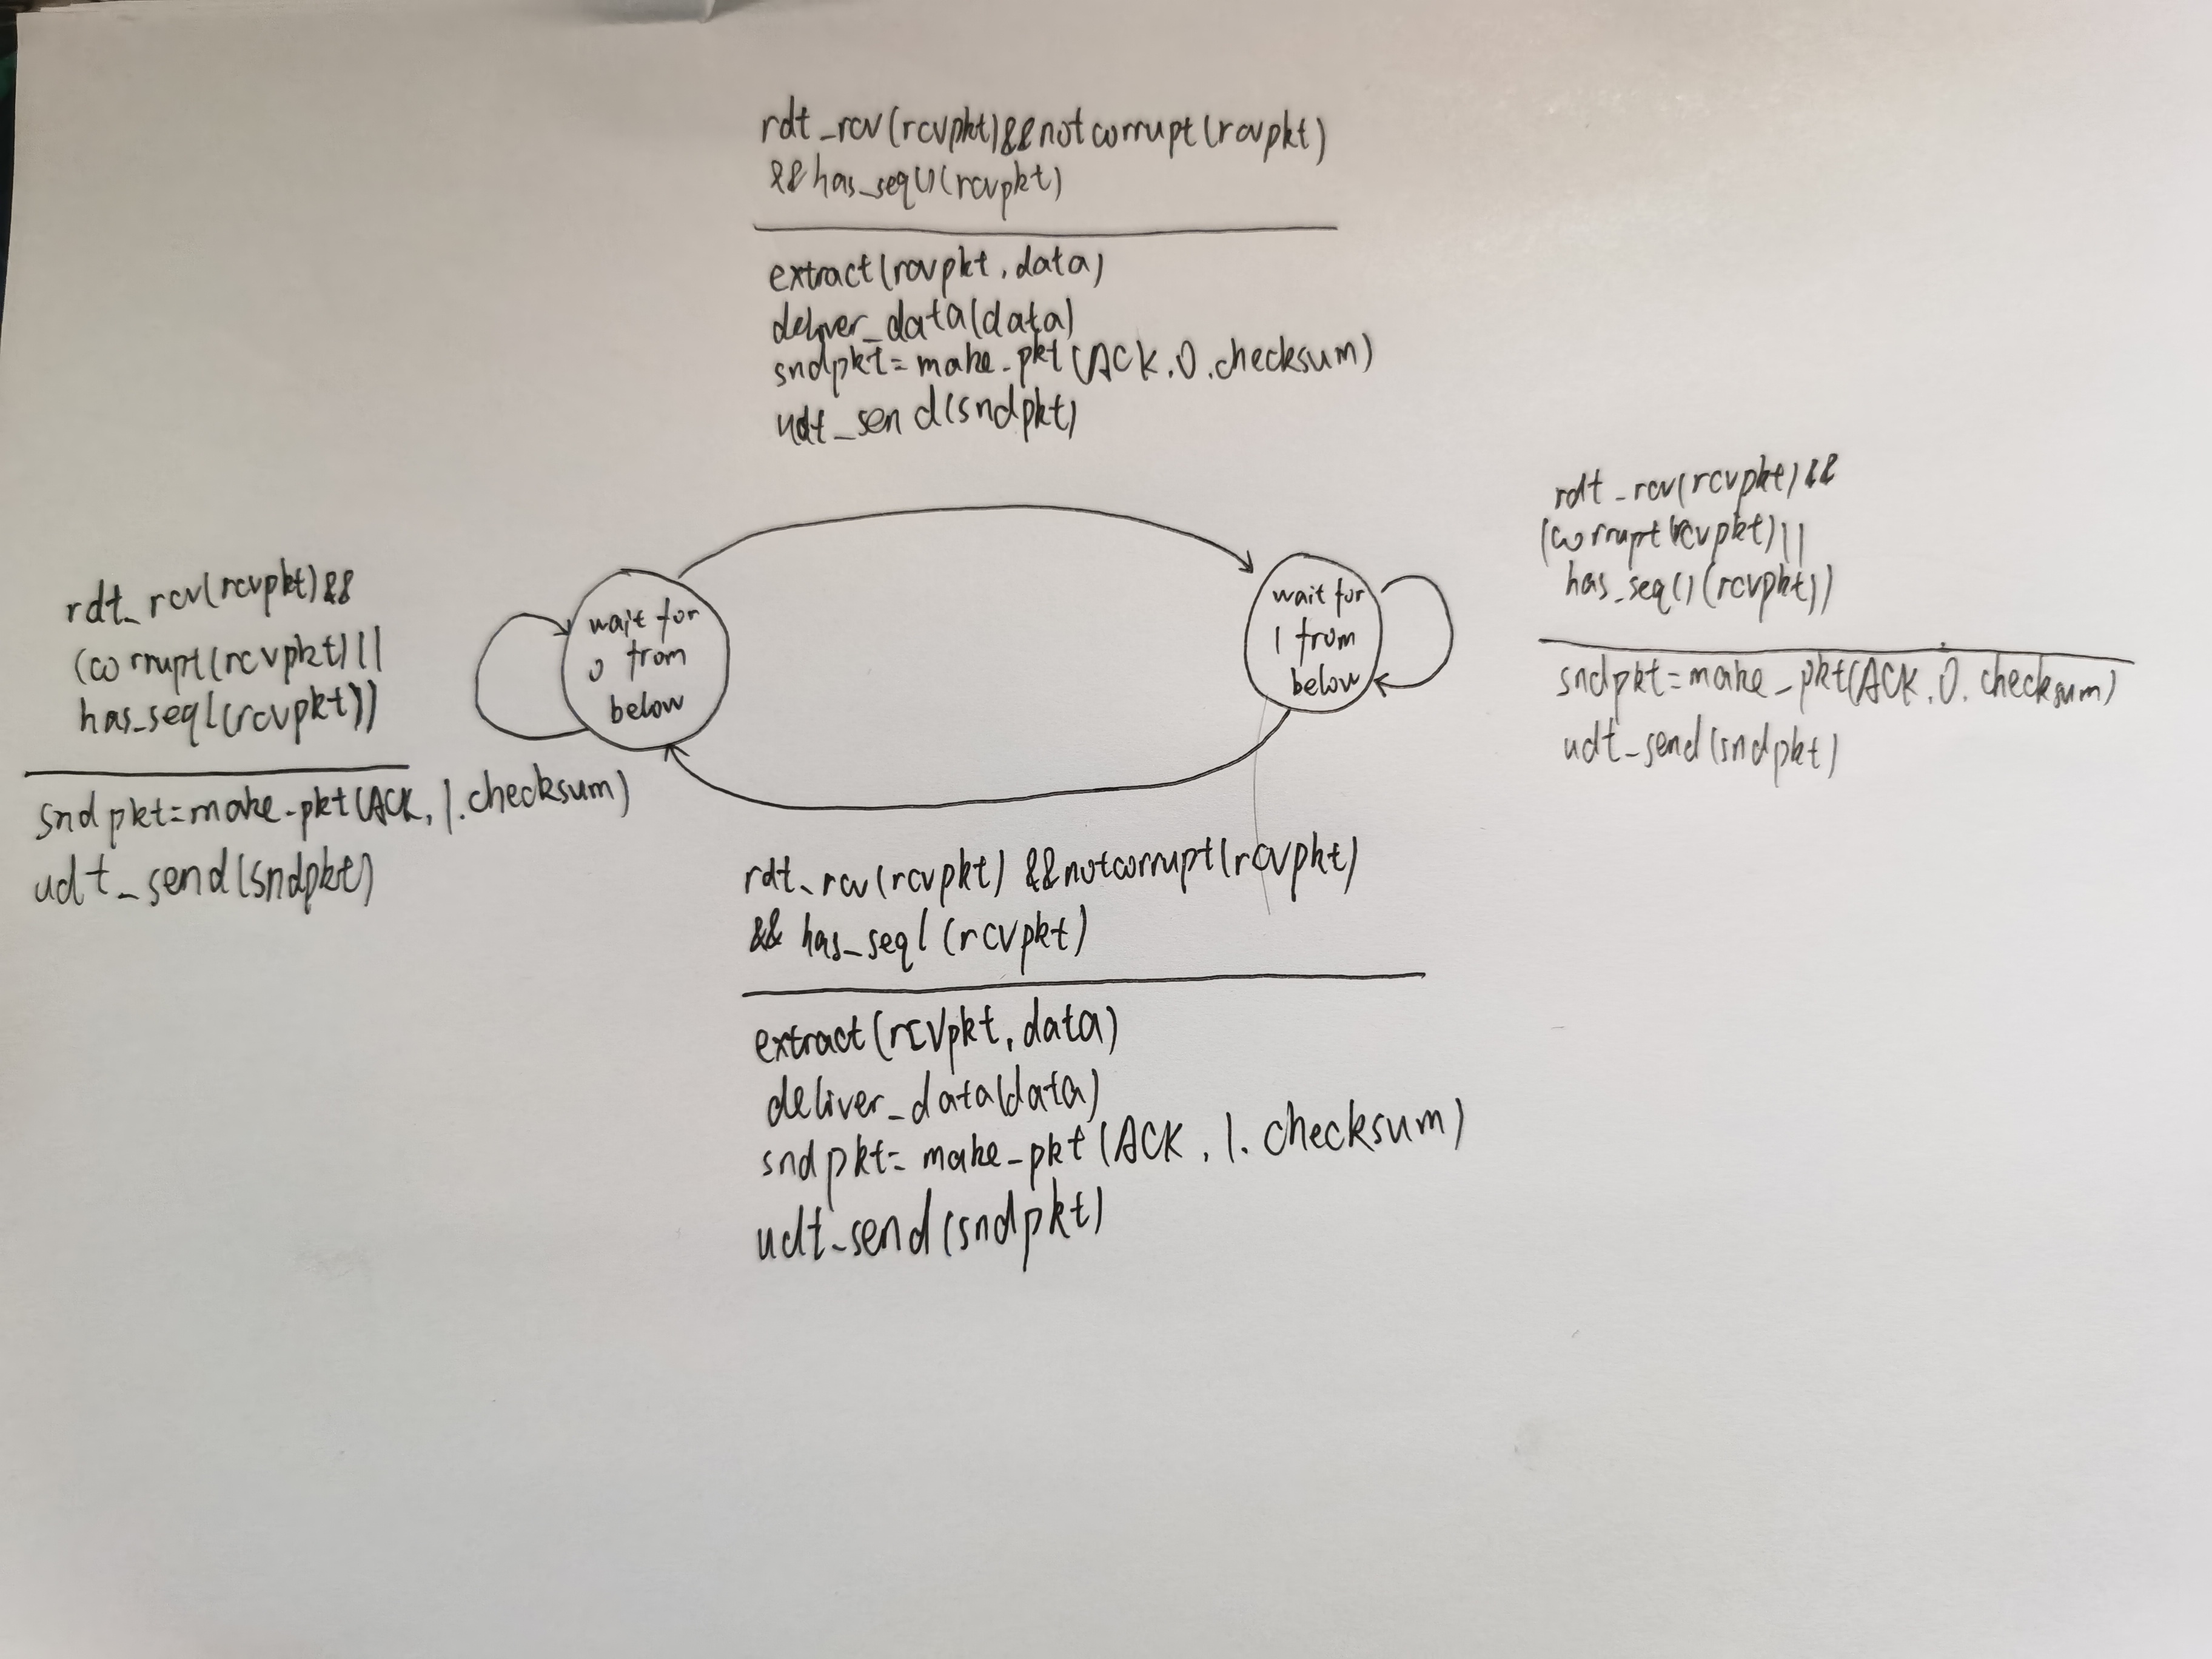 rdt_rcv(rcvpkt)&&notcorrupt(rcvpkt)
&&has_seq0(rcvpkt)
extract(rcvpkt,data)
deliver_data(data)
sndpkt=make_pkt(ACK,0,checksum)
udt_send(sndpkt)
rdt_rcv(rcvpkt)&&
(corrupt(rcvpkt)||
has_seq0(rcvpkt))
sndpkt=make_pkt(ACK,0,checksum)
udt_send(sndpkt)
wait for
0 from
below
wait for
1 from
below
rdt_rcv(rcvpkt)&&
(corrupt(rcvpkt)||
has_seq1(rcvpkt))
sndpkt=make_pkt(ACK,1,checksum)
udt_send(sndpkt)
rdt_rcv(rcvpkt) &&notcorrupt(rcvpkt)
&& has_seq1(rcvpkt)
extract(rcvpkt,data)
deliver_data(data)
sndpkt=make_pkt(ACK,1,checksum)
udt_send(sndpkt)